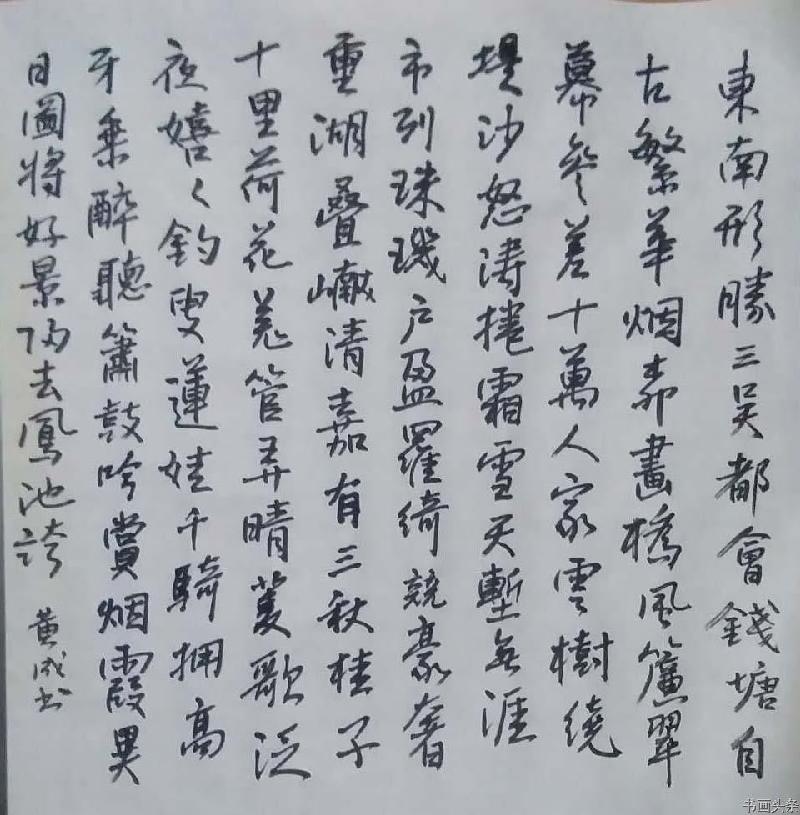 東南形勝三吴都會錢塘自
古繁华烟柳畫橋風簾翠
幕參差十萬人家雲樹繞
堤沙怒涛捲霜雪天塹無涯
市列珠璣户盈羅綺競豪奢
重湖疊巘清嘉有三秋桂子
十里荷花羌管弄晴菱歌泛
夜嬉々釣叟蓮娃千騎拥高
牙乘醉聽簫鼓吟賞烟霞異
日圖将好景归去鳳池誇
黄成书
书画头条